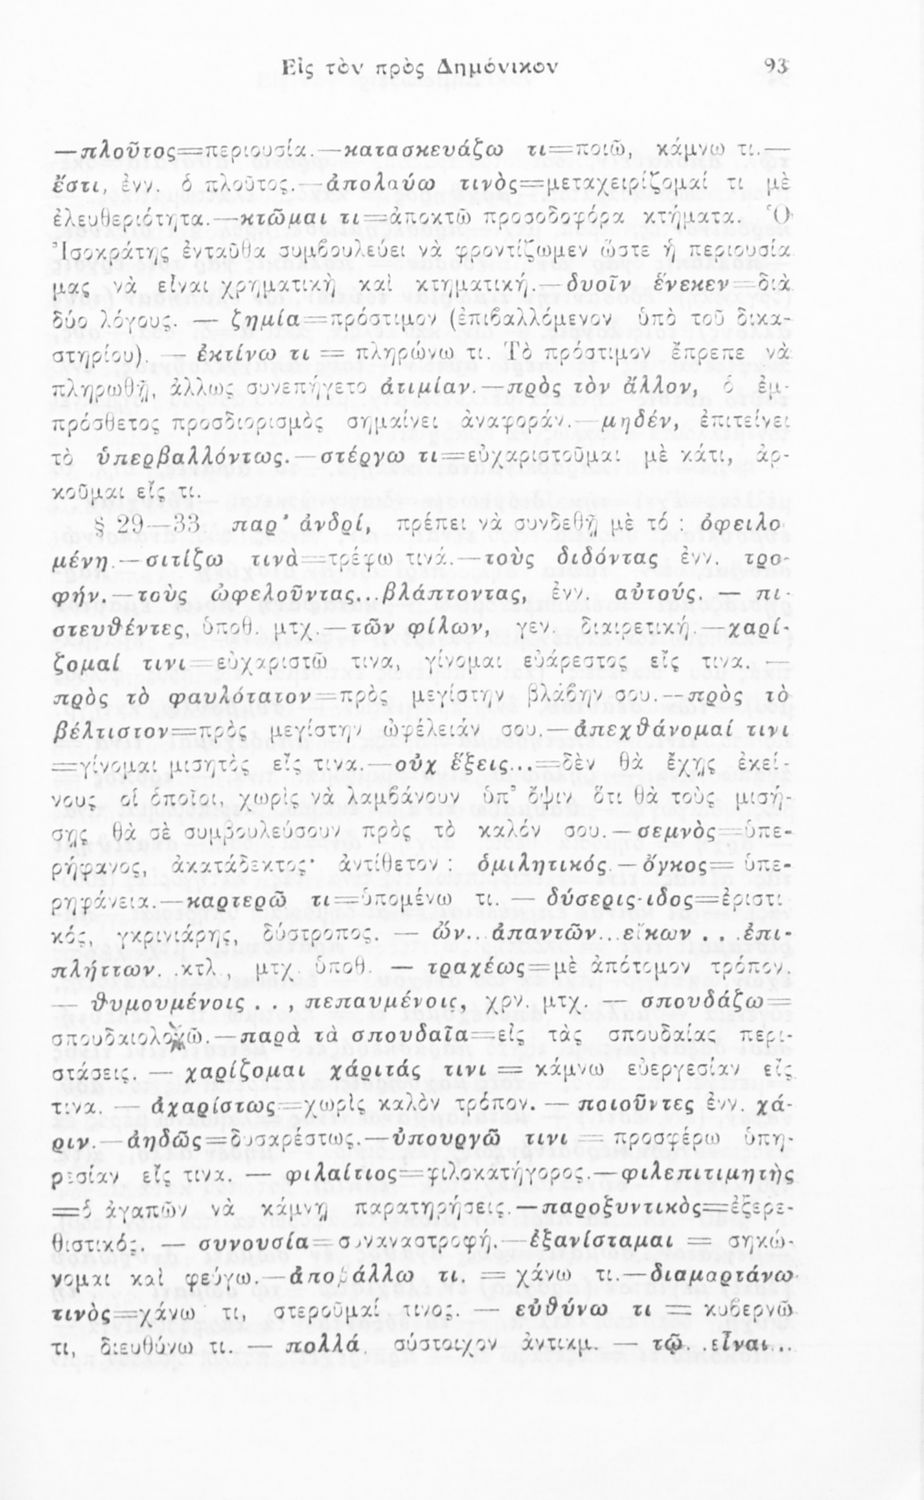 Εἰς τὸν πρὸς Δημόνικον 93
—πλοῦτος=περιουσία.—κατασκευάζω τι=ποιῶ, κάμνω τι.—
ἔστι, ἐνν. ὁ πλοῦτος.—ἀπολαύω τινὸς=μεταχειρίζομαί τι μὲ
ἐλευθεριότητα.—κτῶμαι τι=ἀποκτῶ προσοδοφόρα κτήματα. Ὁ
Ἰσοκράτης ἐνταῦθα συμβουλεύει νὰ φροντίζωμεν ὥστε ἡ περιουσία
μας νὰ εἶναι χρηματικὴ καὶ κτηματική.—δυοῖν ἕνεκεν=διὰ
δύο λόγους. — ζημία=πρόστιμον (ἐπιβαλλόμενον ὑπὸ τοῦ δικα-
στηρίου). — ἐκτίνω τι = πληρώνω τι. Τὸ πρόστιμον ἔπρεπε νὰ
πληρωθῇ, ἄλλως συνεπήγετο ἀτιμίαν.—πρὸς τὸν ἄλλον, ὁ ἐμ-
πρόθετος προσδιορισμὸς σημαίνει ἀναφοράν.—μηδέν, ἐπιτείνει
τὸ ὑπερβαλλόντως.—στέργω τι=εὐχαριστοῦμαι μὲ κάτι, ἀρ-
κοῦμαι εἴς τι.
§ 29—33. παρ' ἀνδρί, πρέπει νὰ συνδεθῇ μὲ τό : ὀφειλο-
μένη.—σιτίζω τινὰ=τρέφω τινά.—τοὺς διδόντας ἐνν. τρο-
φήν.—τοὺς ὠφελοῦντας...βλάπτοντας, ἐνν. αὐτούς. — πι-
στευθέντες, ὑποθ. μτχ.—τῶν φίλων, γεν. διαιρετική.—χαρί-
ζομαί τινι=εὐχαριστῶ τινα, γίνομαι εὐάρεστος εἴς τινα. —
πρὸς τὸ φαυλότατον=πρὸς μεγίστην βλάβην σου.—πρὸς τὸ
βέλτιστον=πρὸς μεγίστην ὠφέλειάν σου.—ἀπεχθάνομαί τινι
=γίνομαι μισητὸς εἴς τινα.—οὐχ ἕξεις...=δὲν θὰ ἔχῃς ἐκεί-
νους οἱ ὁποῖοι, χωρὶς νὰ λαμβάνουν ὑπ' ὄψιν ὅτι θὰ τοὺς μισή-
σῃς θὰ σὲ συμβουλεύσουν πρὸς τὸ καλόν σου.—σεμνὸς=ὑπε-
ρήφανος, ἀκατάδεκτος· ἀντίθετον : ὁμιλητικός.—ὄγκος= ὑπε-
ρηφάνεια.—καρτερῶ τι=ὑπομένω τι. — δύσερις-ιδος=ἐριστι
κός, γκρινιάρης, δύστροπος. — ὤν.. ἀπαντῶν...εἴκων . . .ἐπι-
πλήττων. .κτλ., μτχ. ὑποθ. — τραχέως=μὲ ἀπότομον τρόπον.
— θυμουμένοις . . , πεπαυμένοις, χρν. μτχ. — σπουδάζω=
σπουδαιολογῶ.—παρὰ τὰ σπουδαῖα=εἰς τὰς σπουδαίας περι-
στάσεις. — χαρίζομαι χάριτάς τινι = κάμνω εὐεργεσίαν εἴς
τινα. — ἀχαρίστως=χωρὶς καλὸν τρόπον. — ποιοῦντες ἐνν. χά-
ριν.—ἀηδῶς=δυσαρέστως.—ὑπουργῶ τινι = προσφέρω ὑπη-
ρεσίαν εἴς τινα. — φιλαίτιος=φιλοκατήγορος.—φιλεπιτιμητὴς
=ὁ ἀγαπῶν νὰ κάμνῃ παρατηρήσεις.—παροξυντικὸς=ἐξερε-
θιστικός. — συνουσία=συναναστροφή.—ἐξανίσταμαι = σηκώ-
νομαι καὶ φεύγω.—ἀποβάλλω τι. = χάνω τι.—διαμαρτάνω
τινὸς=χάνω τι, στεροῦμαί τινος. — εὐθύνω τι = κυβερνῶ
τι, διευθύνω τι. — πολλά, σύστοιχον ἀντικμ. — τῷ. .εἶναι...